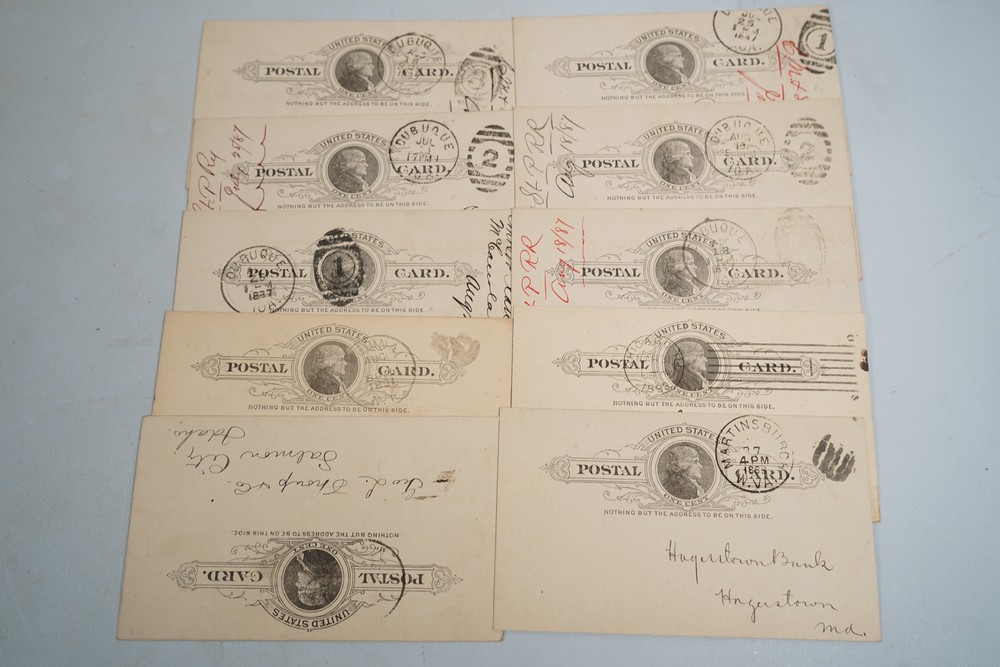 UNITED STATES
POSTAL CARD.
ONE CENT
NOTHING BUT THE ADDRESS TO BE ON THIS SIDE.
DUBUQUE
UNITED STATES
POSTAL CARD.
ONE CENT
NOTHING BUT THE ADDRESS TO BE ON THIS SIDE.
25
1887
IOA.
1
UNITED STATES
POSTAL CARD.
ONE CENT
NOTHING BUT THE ADDRESS TO BE ON THIS SIDE.
DUBUQUE
JUL
2
P Ry
July 29/87
UNITED STATES
POSTAL CARD.
ONE CENT
NOTHING BUT THE ADDRESS TO BE ON THIS SIDE.
DUBUQUE
AUG
IOA.
2
St P RR
Aug 18/87
UNITED STATES
POSTAL CARD.
NOTHING BUT THE ADDRESS TO BE ON THIS SIDE.
DUBUQUE
25
1887
IOA.
1
Aug
UNITED STATES
POSTAL CARD.
ONE CENT
NOTHING BUT THE ADDRESS TO BE ON THIS SIDE.
DUBUQUE
P RR
Aug 18/87
UNITED STATES
POSTAL CARD.
ONE CENT
NOTHING BUT THE ADDRESS TO BE ON THIS SIDE.
UNITED STATES
POSTAL CARD.
ONE CENT
NOTHING BUT THE ADDRESS TO BE ON THIS SIDE.
UNITED STATES
POSTAL CARD.
ONE CENT
NOTHING BUT THE ADDRESS TO BE ON THIS SIDE.
Geo L.
Salmon City
Idaho.
UNITED STATES
POSTAL CARD.
ONE CENT
NOTHING BUT THE ADDRESS TO BE ON THIS SIDE.
MARTINSBURG
27
4 PM
W.VA.
Hagerstown Bank
Hagerstown
Md.